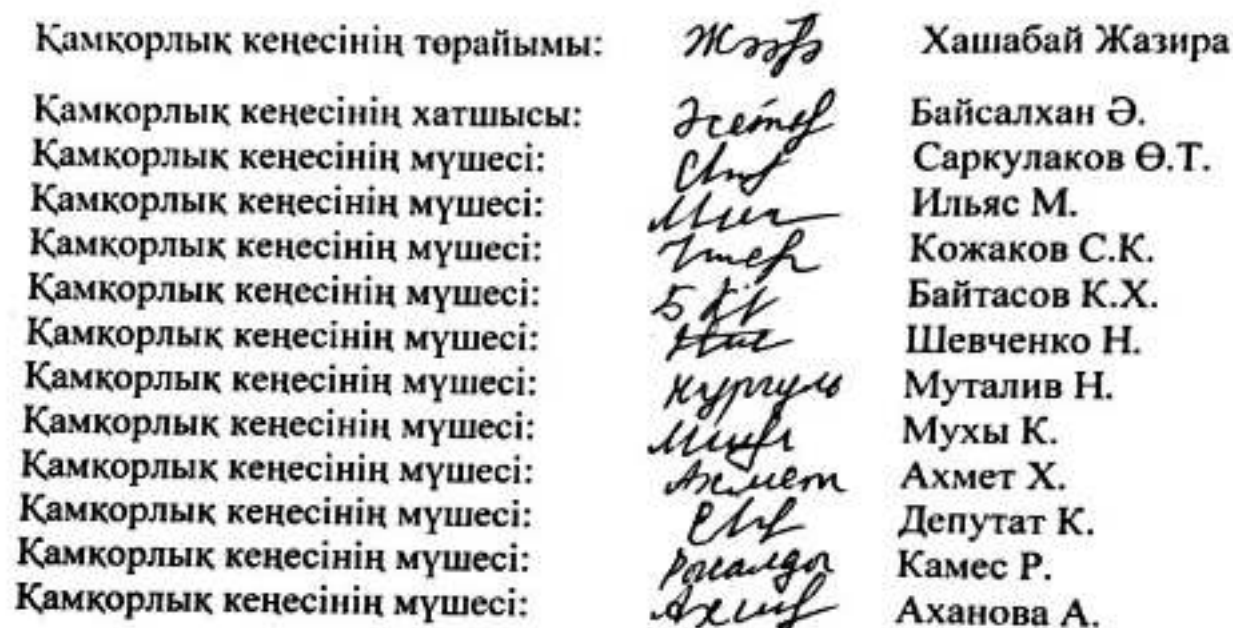 Қамқорлық кеңесінің төрайымы: Хашабай Жазира
Қамқорлық кеңесінің хатшысы: Байсалхан Ә.
Қамқорлық кеңесінің мүшесі: Саркулаков Ө.Т.
Қамқорлық кеңесінің мүшесі: Ильяс М.
Қамқорлық кеңесінің мүшесі: Кожаков С.К.
Қамқорлық кеңесінің мүшесі: Байтасов К.Х.
Қамқорлық кеңесінің мүшесі: Шевченко Н.
Қамқорлық кеңесінің мүшесі: Нургуль Муталив Н.
Қамқорлық кеңесінің мүшесі: Мухы К.
Қамқорлық кеңесінің мүшесі: Ахмет Ахмет Х.
Қамқорлық кеңесінің мүшесі: Депутат К.
Қамқорлық кеңесінің мүшесі: Камес Р.
Қамқорлық кеңесінің мүшесі: Аханова А.